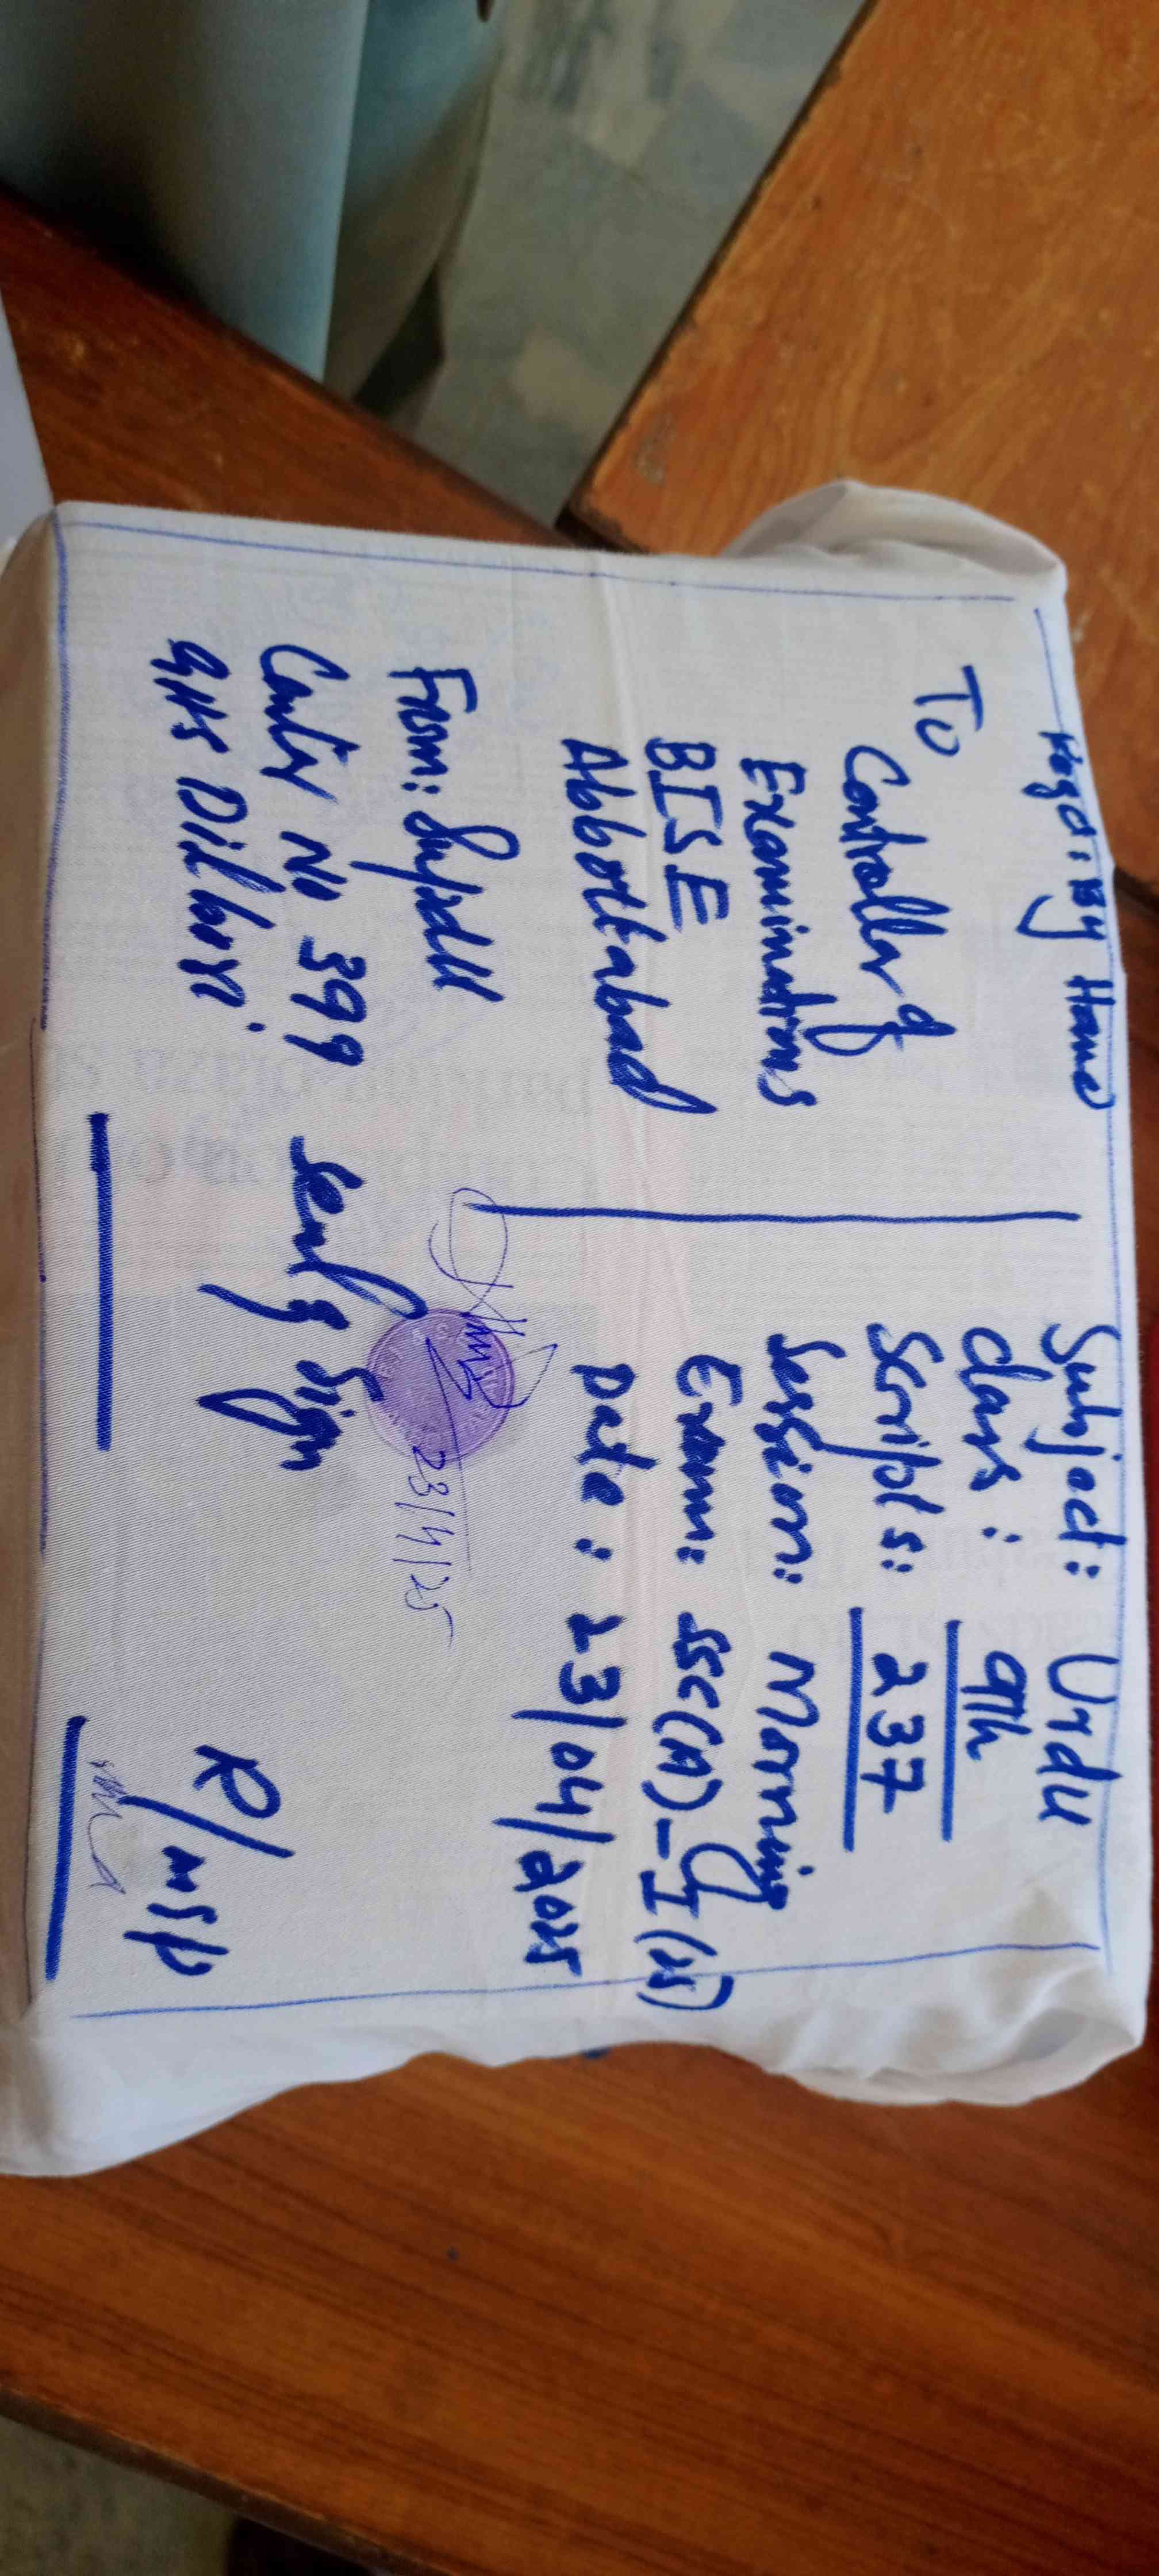 By Hand
To
Controller of
Examinations
BISE
Abbottabad
From: Supdtt
Center No 399
GHS Dilbori
Subject: Urdu
Class: 9th
Scripts: 237
Session: Morning
Exam: SSC(A)-I(25)
Date: 23/04/2025
23/4/25
Seal & Sign
R/insp